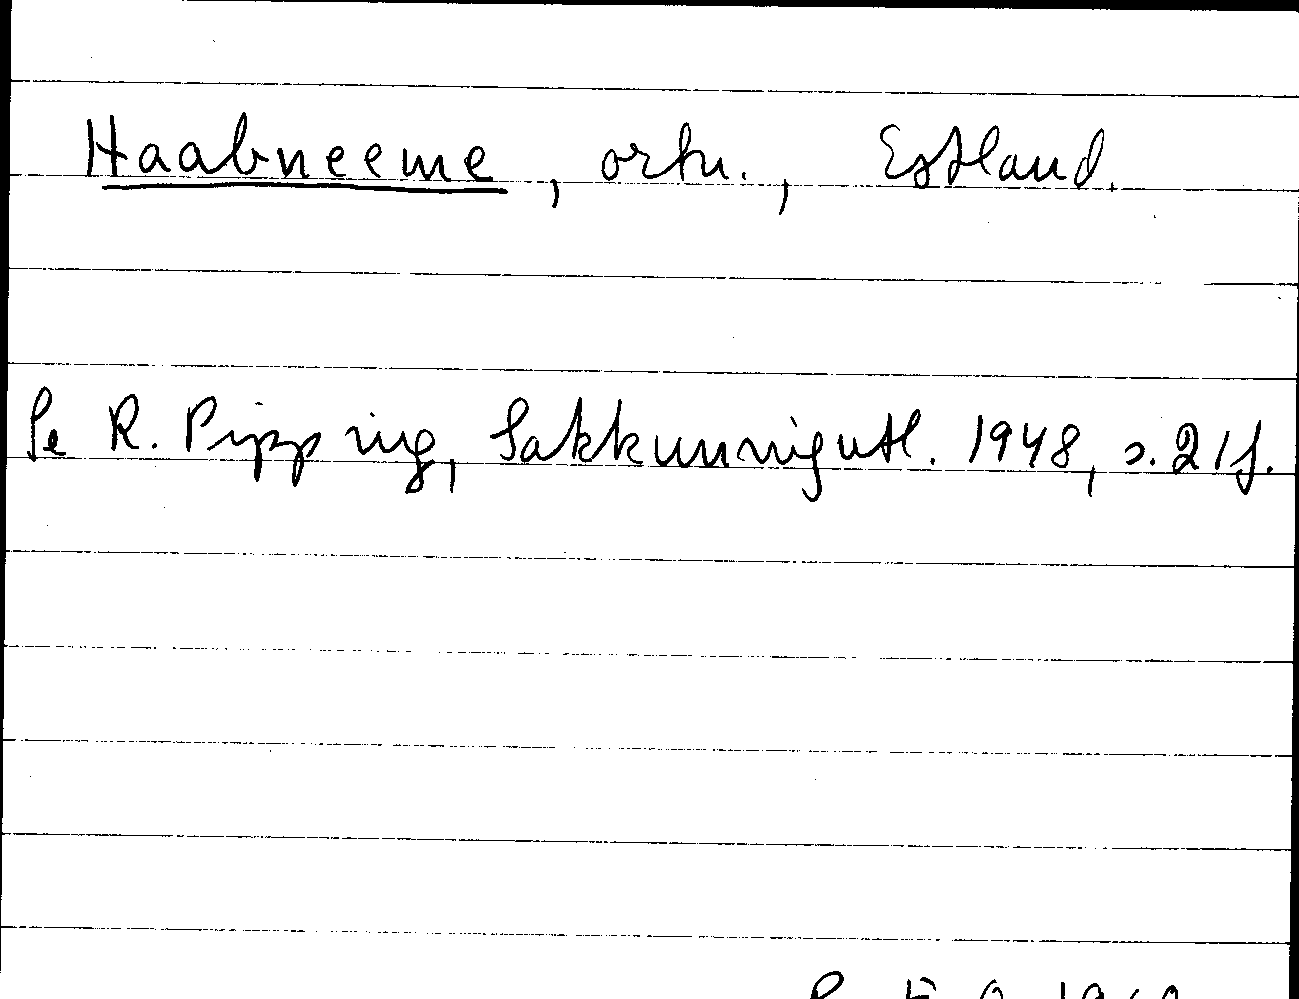 Haabneeme, ortn., Estland.
Se R. Pipping, Sakkunnigutl. 1948, s. 21f.